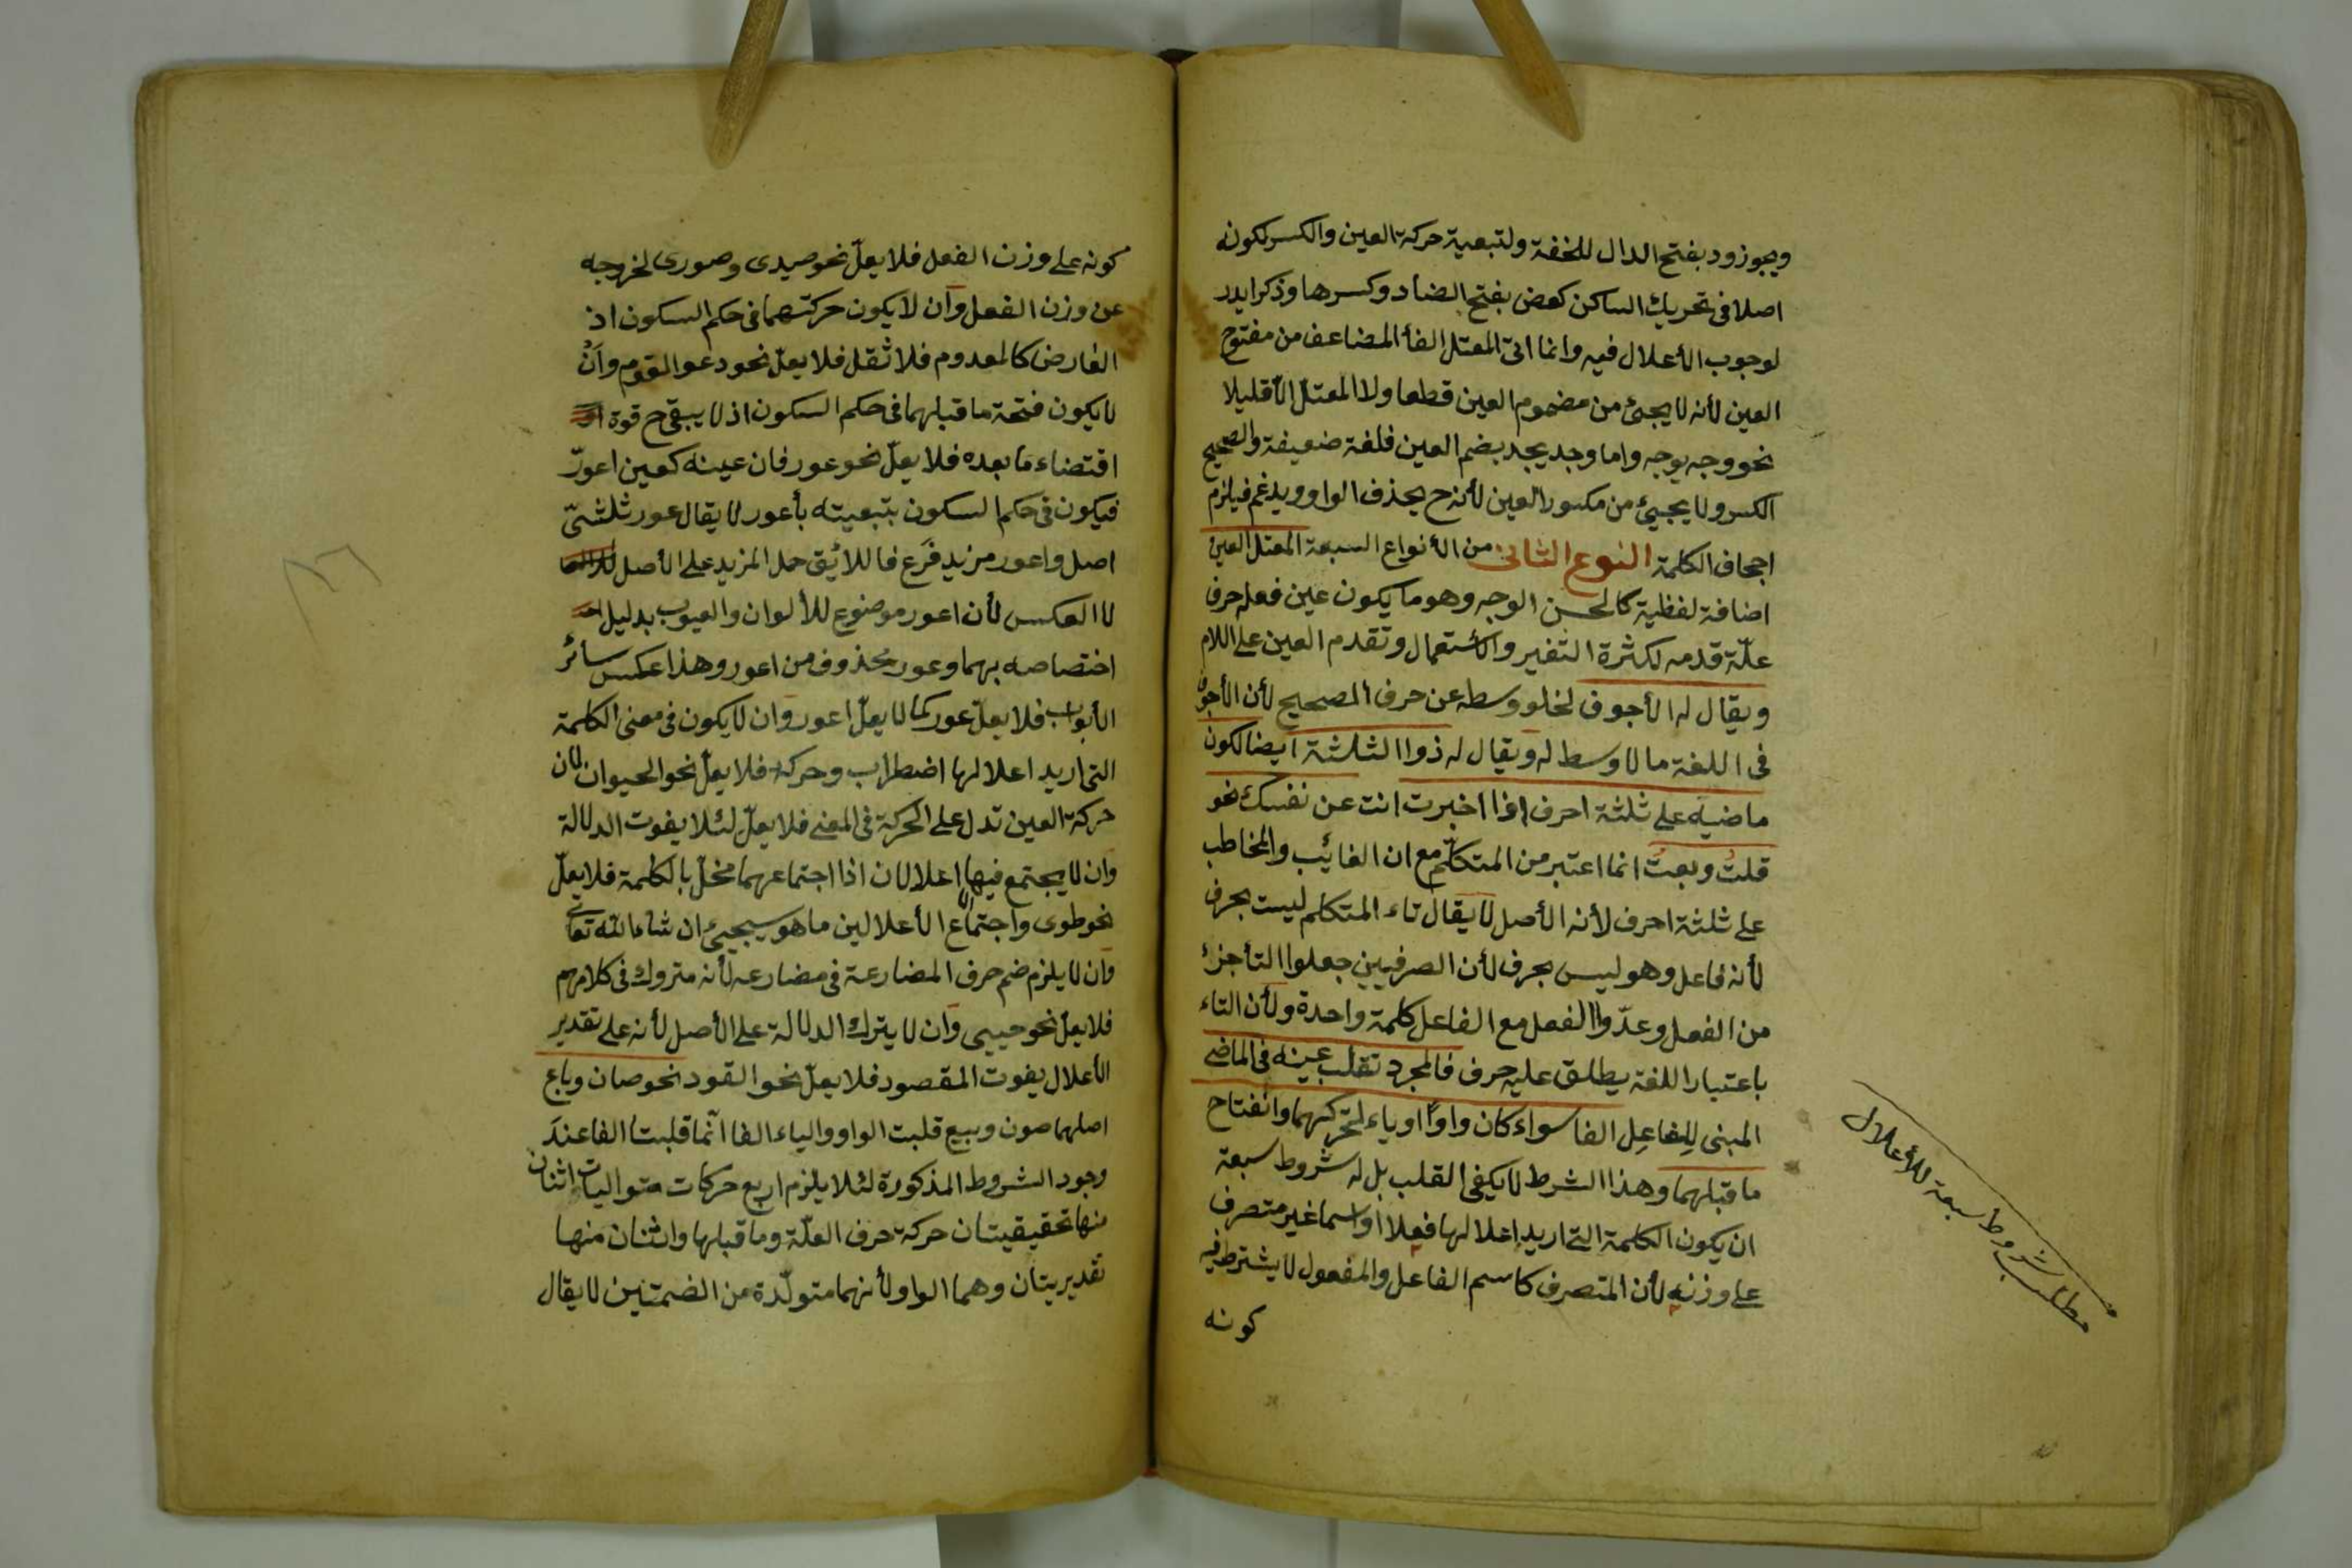 ويجوز ود بفتح الدال للخفة ولتبعية حركة العين والكسر لكونه
اصلا فى تحريك الساكن كعض بفتح الضاد وكسرها وذكر ايدر
لوجوب الأعلال فيه وانما اتى المعتل الفأ المضاعف من مفتوح
العين لأنه لا يجئ من مضموم العين قطعا ولا المعتل الّا قليلا
نحو وجه يوجه واما وجد يجد بضم العين فلغة ضعيفة والصحيح
الكسر ولا يجيئ من مكسور العين لأنه ح يحذف الواو ويدغم فيلزم
اجحاف الكلمة النوع الثانى من الأنواع السبعة المعتل العين
اضافة لفظية كالحسن الوجه وهو ما يكون عين فعله حرف
علّة قدمه لكثرة التغير والأستعمال وتقدم العين على اللام
ويقال له الأجوف لخلو وسطه عن حرف الصحيح لأن الأجوف
فى اللغة ما لا وسط له ويقال له ذوا الثلثة ايضا لكون
ماضيه على ثلثة احرف اذا اخبرت انت عن نفسك نحو
قلتُ وبعتُ انما اعتبر من المتكلّم مع ان الغائب والمخاطب
على ثلثة احرف لأنه الأصل لا يقال تاء المتكلم ليست بحرف
لأنه فاعل وهو ليس بحرف لأن الصرفيين جعلوا التأ جزء
من الفعل وعدّوا الفعل مع الفاعل كلمة واحدة ولأن التاء
باعتبار اللغة يطلق عليه حرف فالمجرد تقلب عينه فى الماضى
المبنى للفاعِل الفا سواء كان واوًا او ياء لتحركهما وانفتاح
ما قبلهما وهذا الشرط لا يكفى القلب بل له شروط سبعة
ان يكون الكلمة التى اريد اعلالها فعلا او اسما غير متصرف
على وزنه لأن المتصرف كاسم الفاعل والمفعول لا يشترط فيه
كونه
مطلب شروط سبعة للأعلال
كونه على وزن الفعل فلا يعلّ نحو صيدى وصورى لخروجه
عن وزن الفعل وان لا يكون حركتهما فى حكم السكون اذ
العارض كالمعدوم فلا ثقل فلا يعلّ نحو دعو القوم وأن
لا يكون فتحة ما قبلهما فى حكم السكون اذ لا يبقى ح قوة
اقتضاء ما بعده فلا يعلّ نحو عور فان عينه كعين اعورّ
فيكون فى حكم السكون بتبعيته بأعور لا يقال عور ثلثىّ
اصل واعور مزيد فرع فاللائق حمل المزيد على الأصل
لا العكس لأن اعور موضوع للألوان والعيوب بدليل
اختصاصه بهما وعور محذوف من اعور وهذا عكس سائر
الأبواب فلا يعلّ عور كما لا يعلّ اعور وان لا يكون فى معنى الكلمة
التى اريد اعلالها اضطراب وحركة فلا يعلّ نحو الحيوان لان
حركة العين تدل على الحركة فى المعنى فلا يعلّ لئلا يفوت الدلالة
وان لا يجتمع فيها اعلالان اذا اجتماعهما مخلّ بالكلمة فلا يعلّ
نحو طوى واجتماع الأعلالين ما هو سيجيئ ان شاء الله تعالى
وان لا يلزم ضم حرف المضارعة فى مضارعه لأنه متروك فى كلامهم
فلا يعلّ نحو حيى وان لا يترك الدلالة على الأصل لأنه على تقدير
الأعلال يفوت المقصود فلا يعلّ نحو القود نحو صان وباع
اصلهما صون وبيع قلبت الواو والياء الفا انّما قلبتا الفا عند
وجود الشروط المذكورة لئلا يلزم اربع حركات متواليات اثنان
منها تحقيقيتان حركة حرف العلّة وما قبلها واثنان منها
تقديريتان وهما الواو لأنهما متولّدة من الضمتين لا يقال